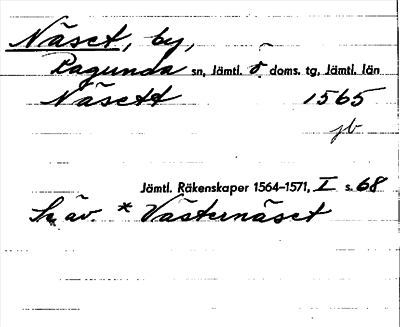 Näset, by,
Ragunda sn, Jämtl. ö doms. tg, Jämtl. län
Näsett 1565
jb
Jämtl. Räkenskaper 1564-1571, I s. 68
äv. * Västernäset